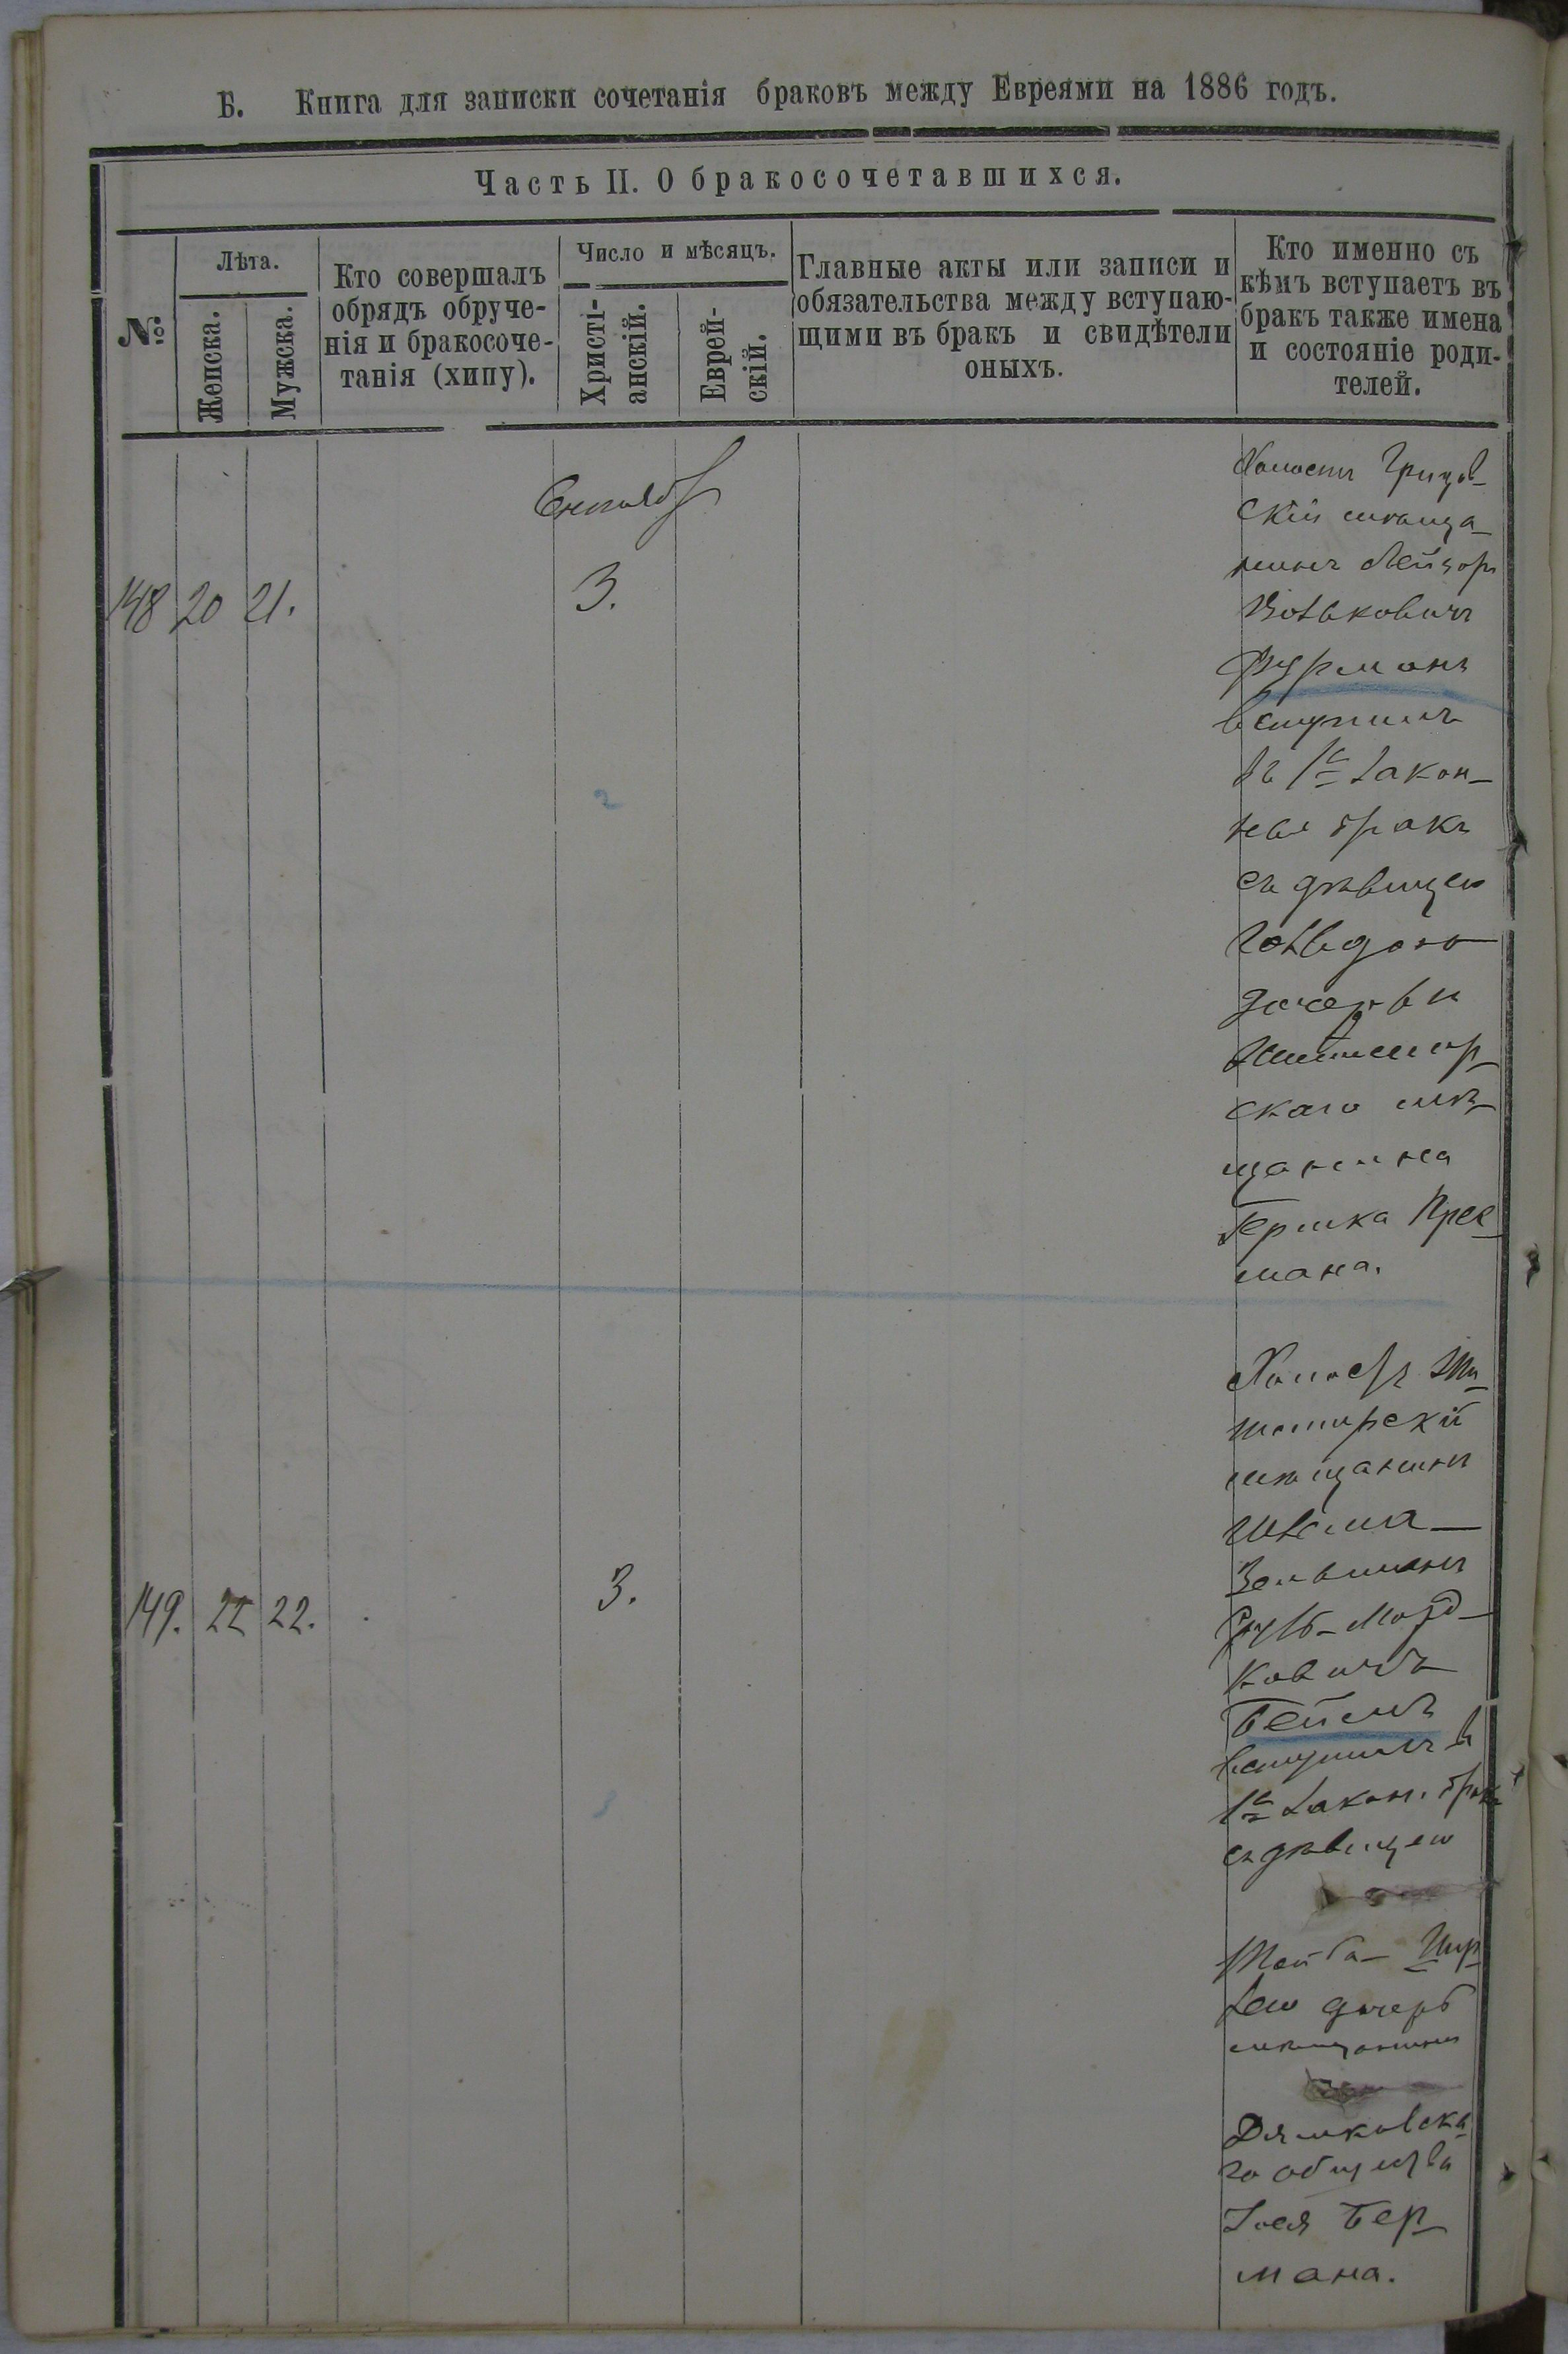 Б. Книга для записки сочетанія браковъ между Евреями на 1886 годъ.
Часть II. О бракосочетавшихся.
№
Лѣта.
Женска.
Мужска.
Кто совершалъ
обрядъ обруче-
нія и бракосоче-
танія (хипу).
Число и мѣсяцъ.
Христі-
анскій.
Еврей-
скій.
Главные акты или записи и
обязательства между вступаю-
щими въ бракъ и свидѣтели
оныхъ.
Кто именно съ
кѣмъ вступаетъ въ
бракъ также имена
и состояніе роди-
телей.
148 20 21.
3.
Холостъ
скій мѣща-
нинъ Лейзоръ
Волькович
Фурманъ
вступилъ
въ 1й закон-
ный бракъ
съ дѣвицею
Гольдою
дочерью
Житомир-
скаго мѣ-
щанина
Гершка
мана.
149. 22 22.
3.
Холостъ Жи-
томирскій
мѣщанинъ
Шлема-
Зельманъ
Морд-
ковичъ
Бейлъ
вступилъ въ
1й закон. бракъ
съ дѣвицею
Тайба-
дочерь
мѣщанина
го общества
Бер-
мана.